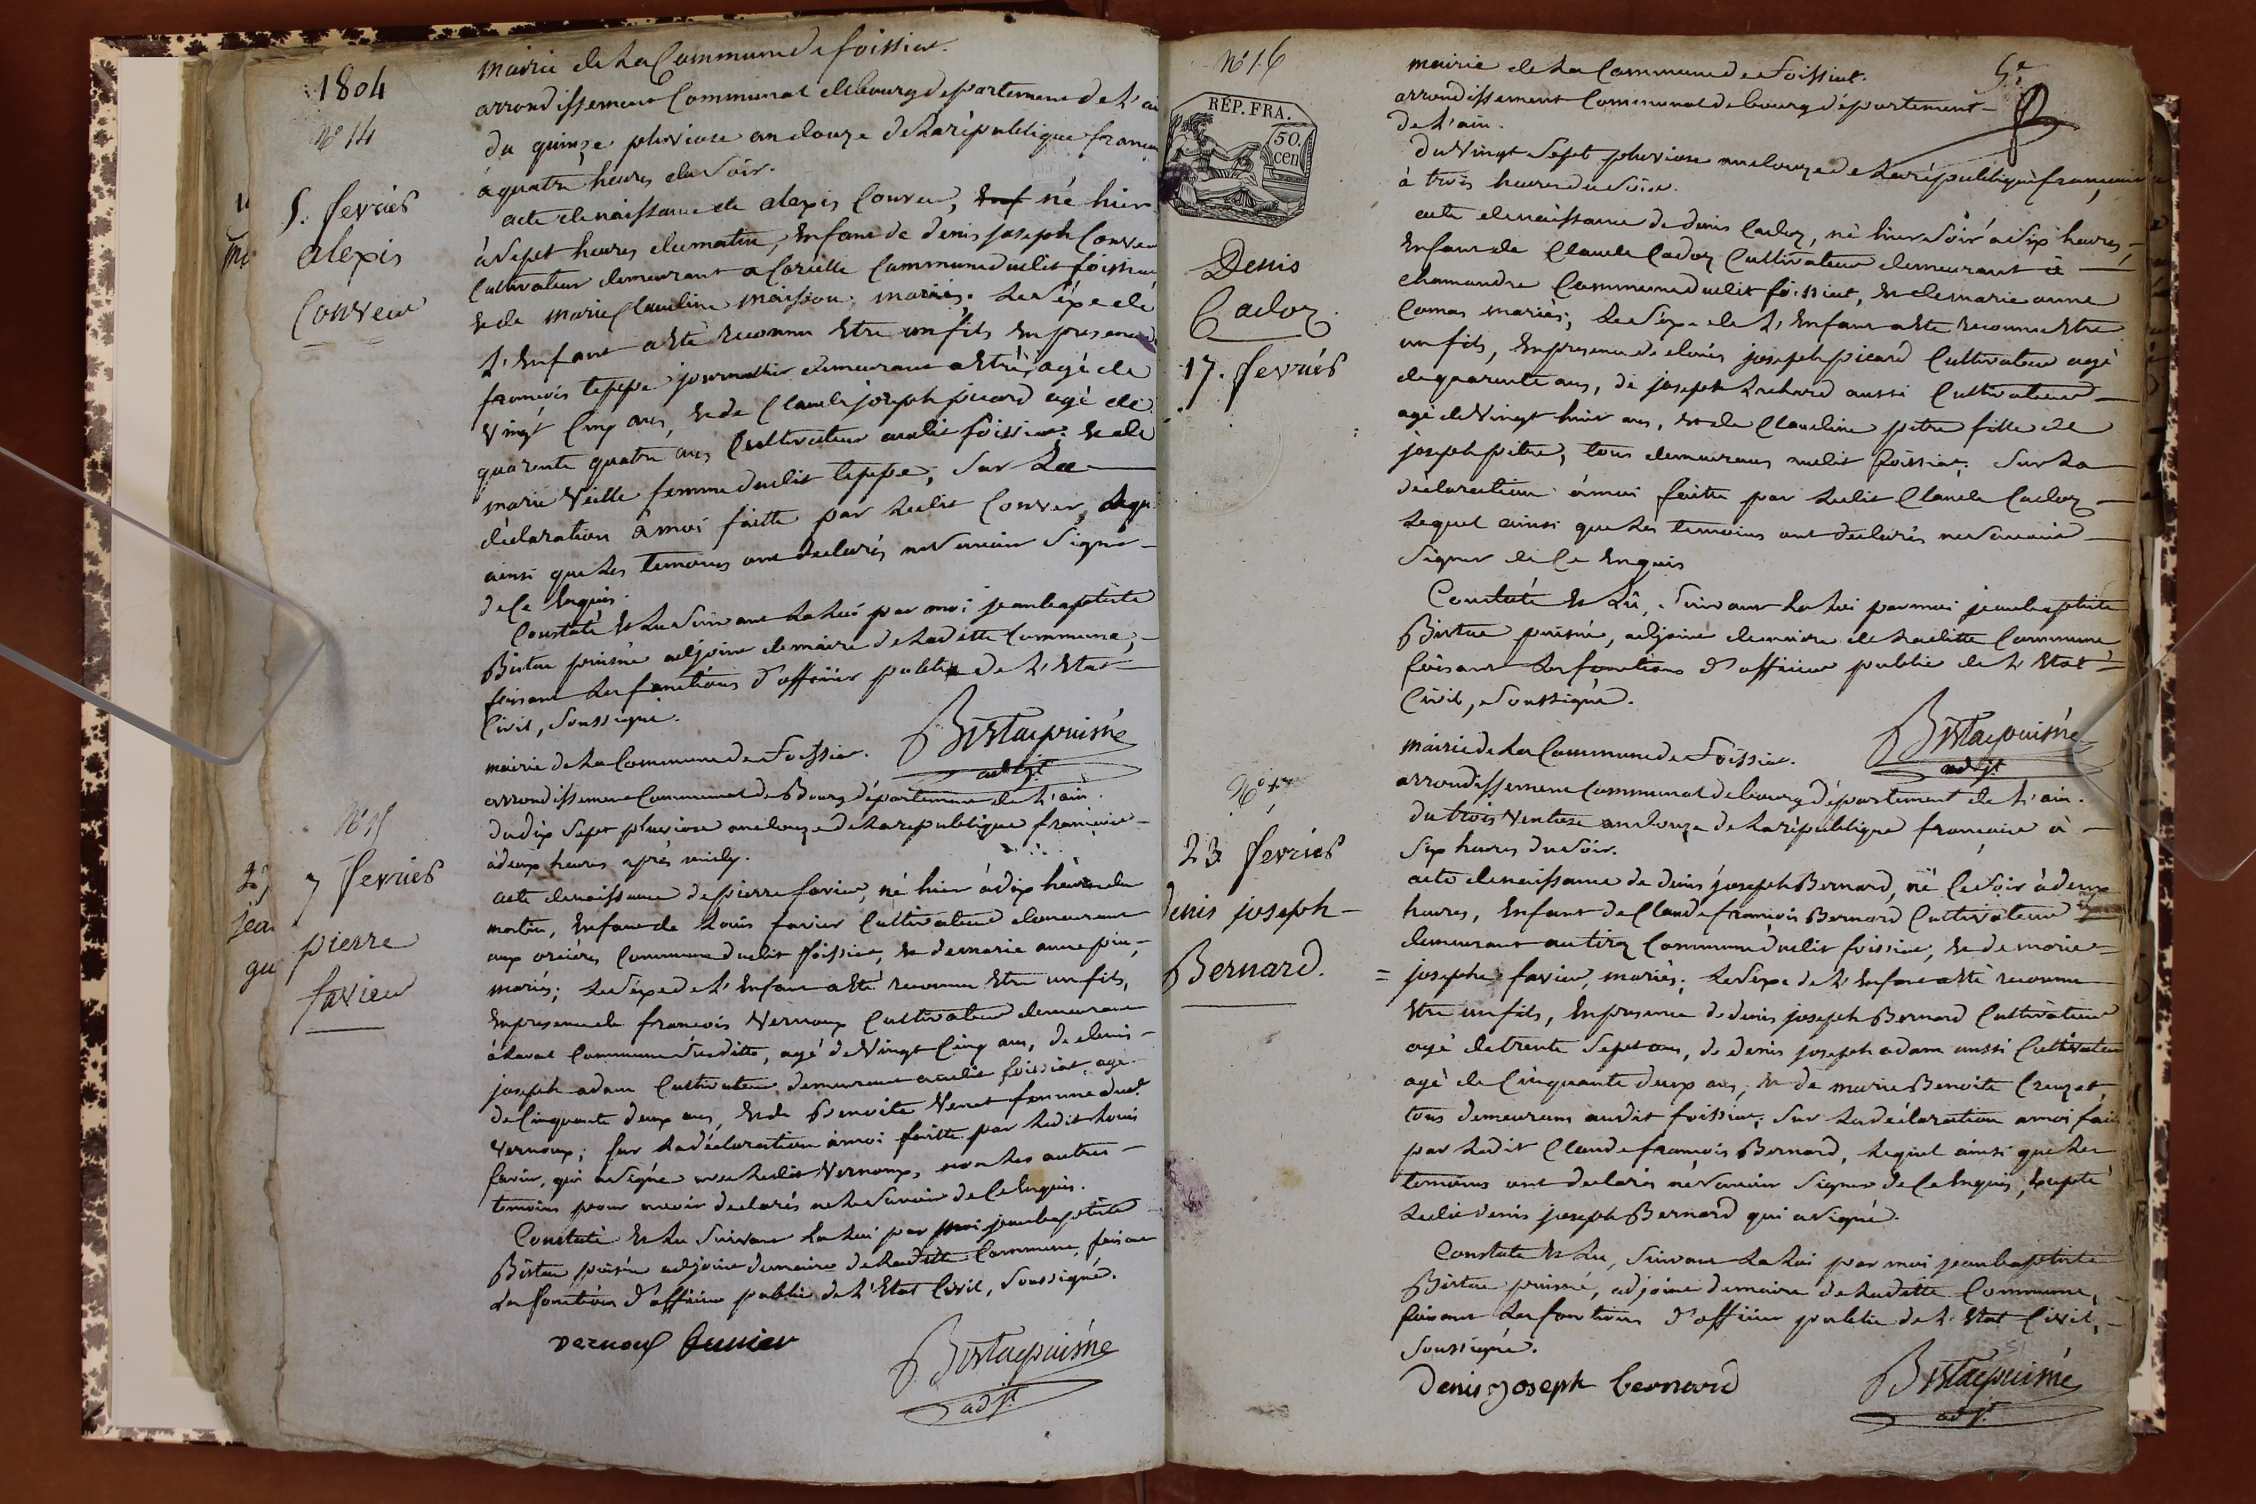 1804
N° 14
5. fevrier
alexis
Couveur
mairie de La Commune de foissiat.
arrondissement Communal de bourg departement de L'ain
du quinze pluviose an douze de La republique française
à quatre heures du Soir.
acte de naissance de alexis Couveur, né hier
à Sept heures du matin, Enfant de denis joseph Couveur
Cultivateur demeurant a Commune dudit foissiat
et de marie Claudine mariés; Le Sexe de
L'Enfant a Eté reconnu Etre un fils En presence de
francois teppe journallier demeurant agé de
vingt Cinq ans, et de Claude joseph picard agé de
quarente quatre ans Cultivateur audit foissiat; et de
marie Vielle femme dudit teppe; Sur La
déclaration à moi faitte par Ledit Couveur, Lequel
ainsi que Les temoins ont declarés ne Savoir Signer
de Ce Enquis.
Constaté et Lu Suivant La Loi par moi jean baptiste
puisné adjoint de maire de Laditte Commune,
faisant Les fonctions d'officier public de L'Etat
Civil, Soussigné.
puisné
adjt
N° 15
7 fevrier
pierre
favier
mairie de La Commune de Foissiat.
arrondissement Communal de Bourg département de L'ain.
du dix Sept pluviose an douze de La republique francaise
à deux heures après midy.
acte de naissance de pierre favier, né hier à dix heures du
matin, Enfant de Louis favier Cultivateur demeurant
aux Commune dudit foissiat, et de marie anne
mariés; Le Sexe de L'Enfant a Eté reconnu Etre un fils,
En presence de francois Vernoux Cultivateur demeurant
Commune Susditte, agé de Vingt Cinq ans, de denis
joseph adam Cultivateur demeurant audit foissiat agé
de Cinquante deux ans, et de Benoite femme dudt
Vernoux; Sur La déclaration à moi faitte par Ledit Louis
favier, qui a Signé avec Ledit Vernoux, non Les autres
temoins pour avoir declarés ne Le Savoir de Ce Enquis.
Constaté et Lu Suivant La Loi par moi jean baptiste
puisné adjoint de maire de Laditte Commune, faisant
Les fonctions d'officier public de L'Etat Civil, Soussigné.
vernoux favier
puisné
adjt
N° 16
RÉP. FRA.
50.
cen
Denis
Cadoz.
17. fevrier
mairie de La Commune de Foissiat.
arrondissement Communal de bourg département
de L'ain.
du Vingt Sept pluviose an douze de La république française
à trois heures du Soir.
acte de naissance de denis Cadoz, né hier Soir à Six heures,
Enfant de Claude Cadoz Cultivateur demeurant à
chamandre Commune dudit foissiat, et de marie anne
Comas mariés; Le Sexe de L'Enfant a Eté reconnu Etre
un fils, En presence de denis joseph picard Cultivateur agé
de quarente ans, de joseph aussi Cultivateur
agé de Vingt huit ans, et de Claudine pitre fille de
joseph pitre, tous demeurans audit foissiat; Sur La
déclaration à moi faitte par Ledit Claude Cadoz
Lequel ainsi que Les temoins ont declarés ne Savoir
Signer de Ce Enquis
Constaté et Lû, Suivant La Loi par moi jean baptiste
puisné, adjoint de maire de Laditte Commune
faisant Les fonctions d'officier public de L'Etat
Civil, Soussigné.
puisné
adjt
N° 17
23 fevrier
denis joseph
Bernard.
mairie de La Commune de Foissiat.
arrondissement Communal de bourg département de L'ain.
du trois Ventose an douze de La république française à
Six heures du Soir.
acte de naissance de denis joseph Bernard, né Ce Soir à deux
heures, Enfant de Claude francois Bernard Cultivateur
demeurant au tiroz Commune dudit foissiat, et de marie
josephe favier, mariés; Le Sexe de L'Enfant a Eté reconnu
Etre un fils, En presence de denis joseph Bernard Cultivateur
agé de trente Sept ans, de denis joseph adam aussi Cultivateur
agé de Cinquante deux ans, et de marie Benoite Creuzet,
tous demeurans audit foissiat; Sur La déclaration a moi faitte
par Ledit Claude francois Bernard, Lequel ainsi que Les
temoins ont declarés ne Savoir Signer de Ce Enquis, Excepté
Ledit denis joseph Bernard qui a Signé.
Constaté et Lu, Suivant La Loi par moi jean baptiste
puisné, adjoint de maire de Laditte Commune,
faisant Les fonctions d'officier public de L'Etat Civil,
Soussigné.
denis joseph bernard
puisné
adjt